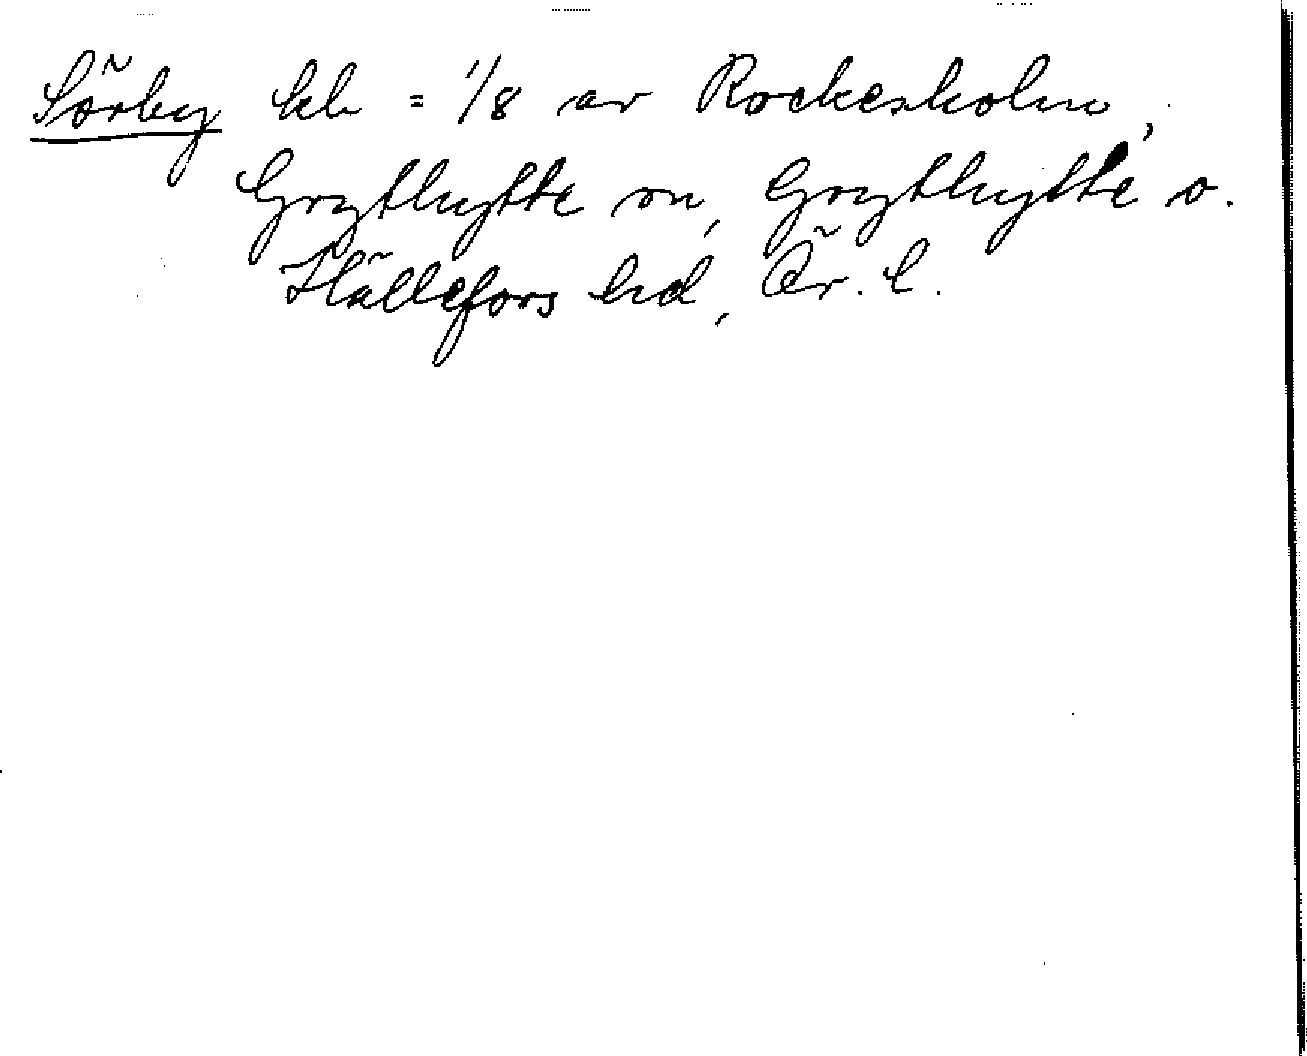 Sörby kb = 1/8 av Rockesholm,
Grythytte sn, Grythytte o.
Hällefors hd, Ör. l.